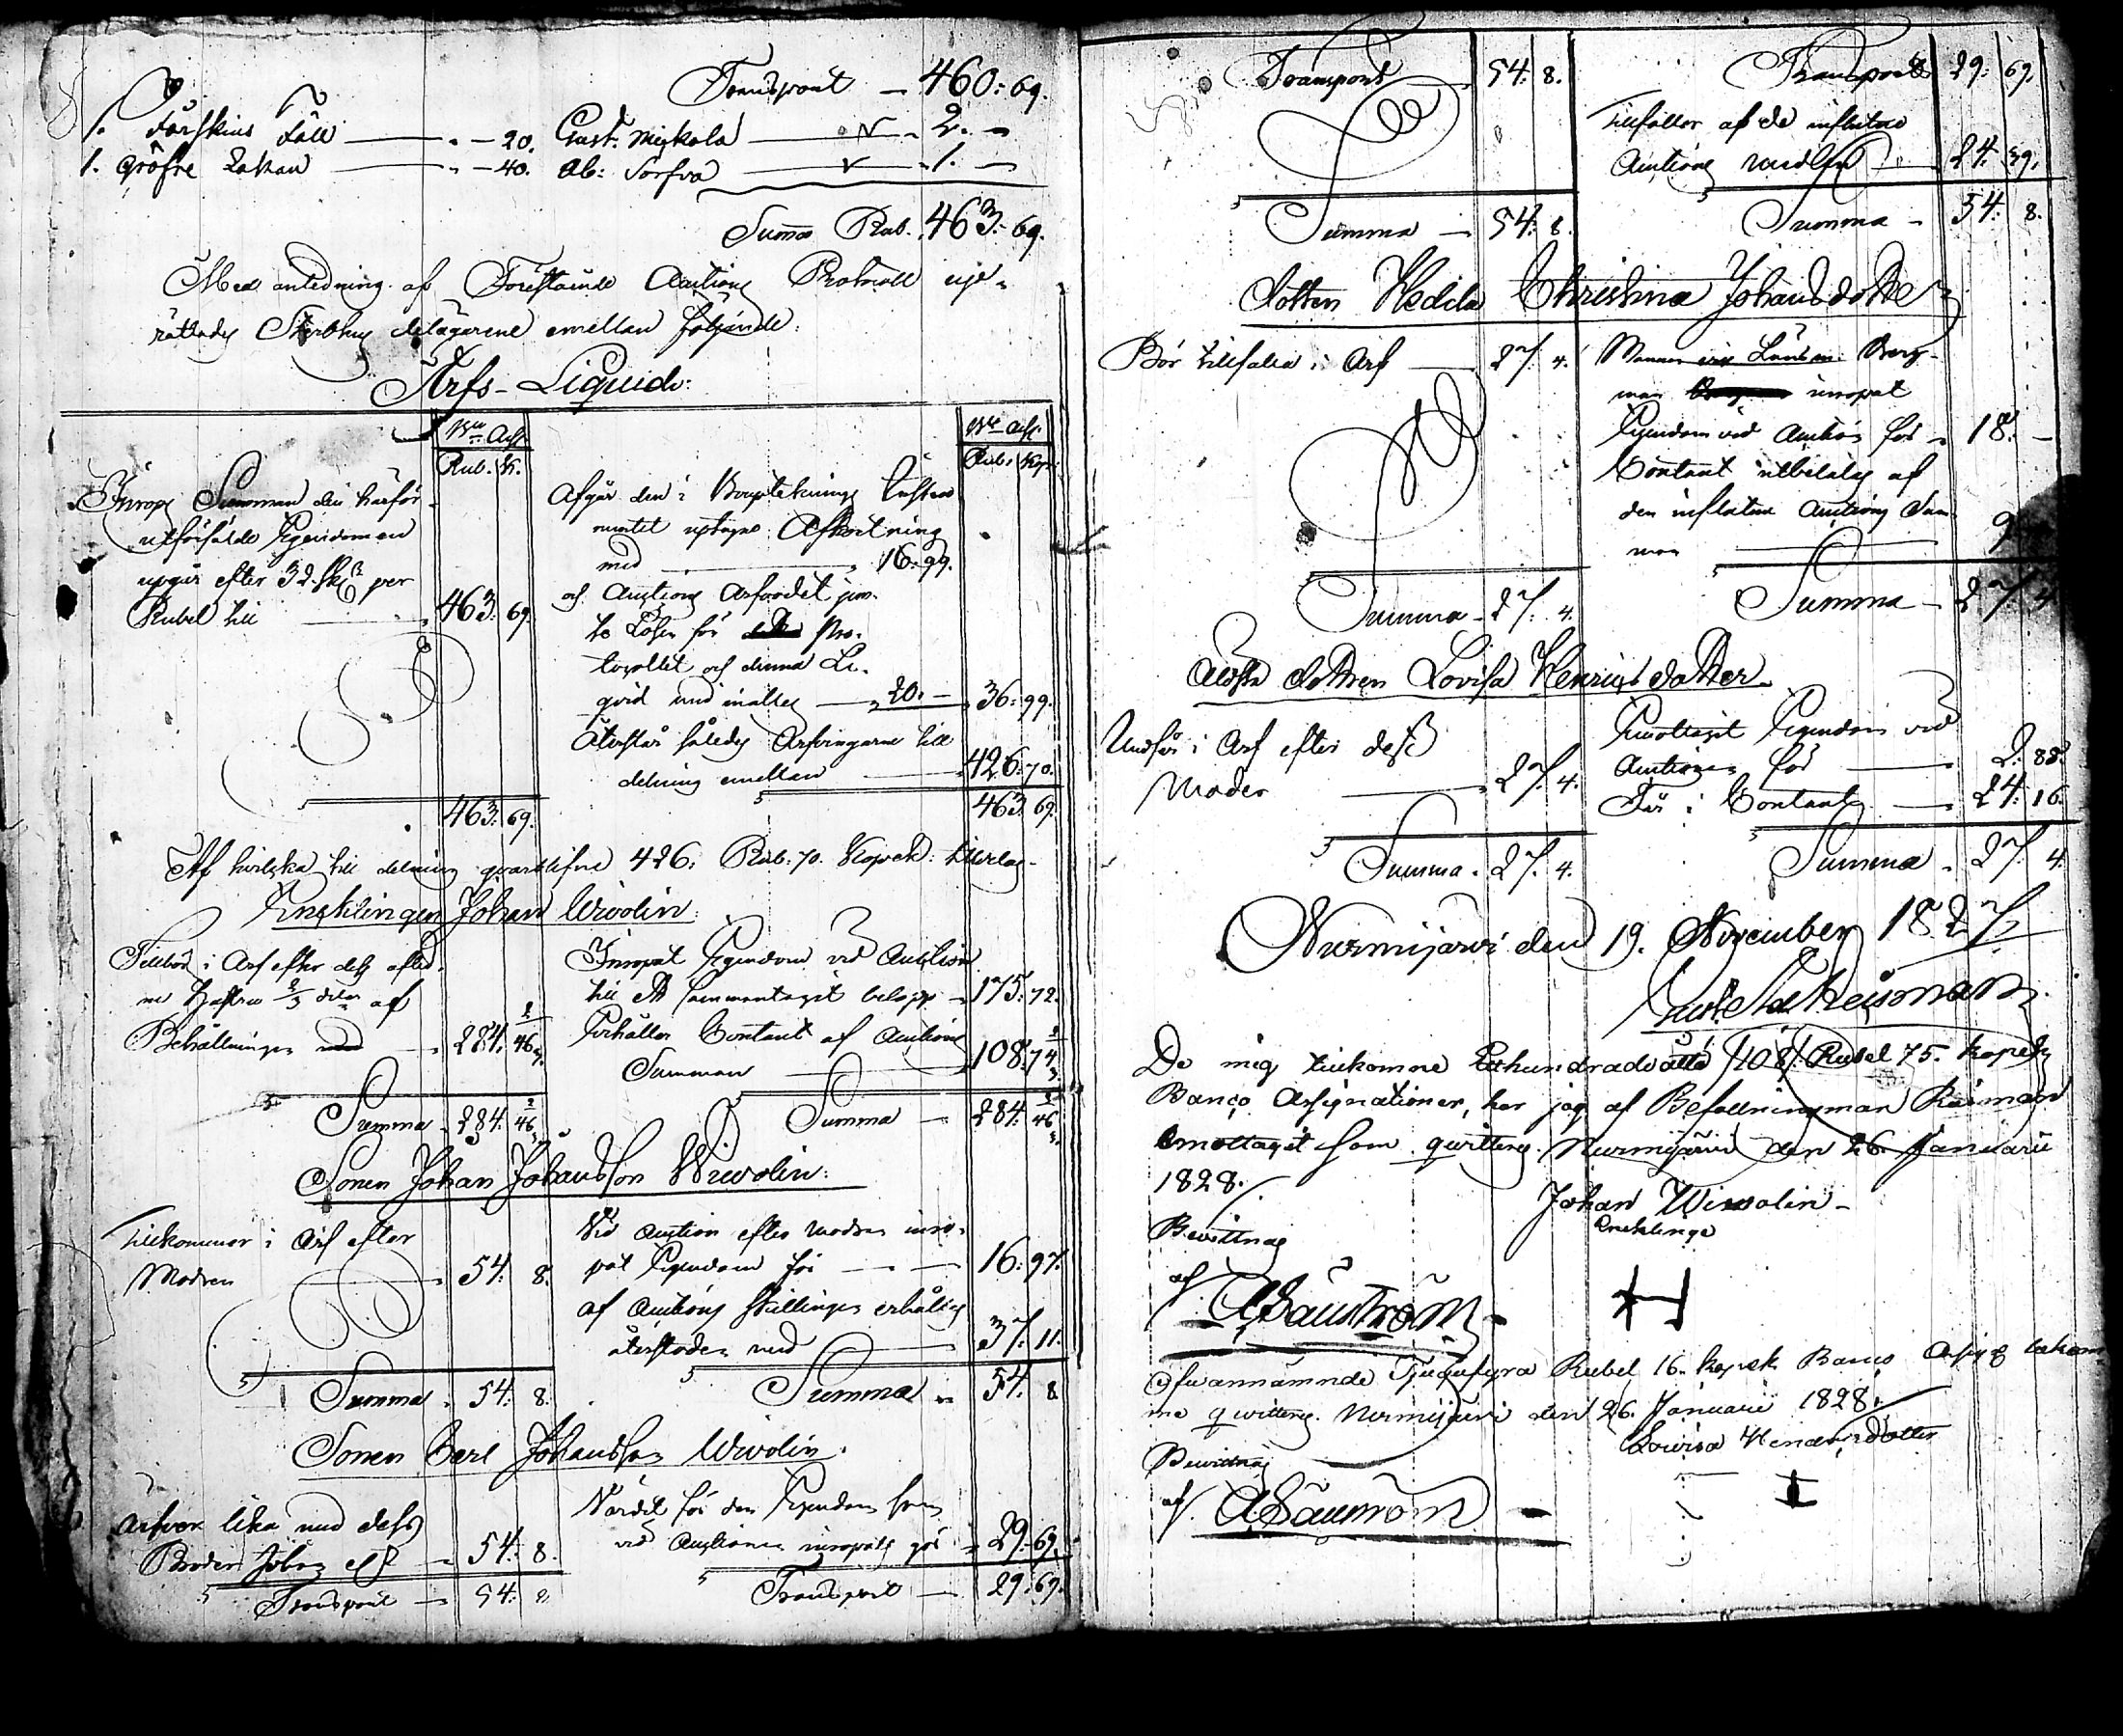 Transport — 460: 69.
1. Fårskins Fäll — " — 20. Gust: Myköla — 2. —
1. gröfre Lakan — " — 40. Ab: Sorfva — 1. —
Summa Rub. 463: 69.
Med anledning af Förestående Auctions Protocoll upp-
rättades Sterbhus delägarene emellan följande:
Arfs-Liquid:
Bco Ass.
Rub. K.
Inrops Summan den härför
utförsålde Egendomen
upgår efter 32 sk per
Rubel till — 463: 69.
463: 69.
Bco Ass.
Rub. Kop.
Afgår den i Bouptekings Instru-
mentet uptagne Afkortning
med — 16: 99.
och Auctions Arfvodet jem-
te Lösen för Pro-
tocollet och denna Li-
qvid med inalles — 20. — 36: 99.
Återstår således Arfvingarne till
delning emellan — 426: 70.
463: 69.
Af hvilka till delning qvarblifne 426. Rub: 70. Kopek: tillerlag-
Encklingen Johan Wivolin:
Tillkom i Arf efter dess afled-
ne Hustru 2/3 delar af
Behållningen — 284. 46 2/3
Summa — 284. 46 2/3
Inropat Egendom vid Auction
till ett sammantagit belopp — 175: 72.
Erhåller Contant af Auctions
Summan — 108: 74 2/3
Summa — 284. 46 2/3
Sonen Johan Johansson Wivolin:
Tillkommer i Arf efter
Modren — 54: 8.
Summa — 54: 8.
Vid Auction efter modren inro-
pat Egendom för — 16: 97.
af Auctions skillingen erhålles
återstoden med — 37: 11.
Summa — 54. 8
Sonen Carl Johansson Wivolin.
Arfver lika med dess
Broder Johan — 54: 8.
Transport — 54: 8.
Värdet för den Egendom som
vid Auctionen inropats gör — 29: 69.
Transport — 29: 69.
Transport 54: 8.
Summa — 54: 8.
Transport 29: 69.
Tillfaller af de influtne
Auctions medlen — 24: 39.
Summa — 54: 8.
Dottren Hedda Christina Johansdotter
Bör tillfalla i Arf — 27: 4.
Summa — 27. 4.
Mannen Länsm. Berg-
man inropat
Egendom vid Auction för — 18. —
Contant utbetalas af
den influtna Auctions Sum-
man — 9
Summa — 27. 4
äldsta dottren Lovisa Henricsdotter
Undfår i Arf efter dess
Moder — 27. 4.
Summa — 27. 4.
Emottagit Egendom vid
Auctionen för — 2: 88.
Får i Contant — 24: 16.
Summa — 27. 4.
Nurmijärvi den 19. November 1827.
De mig tillkomne Etthundrade åtta /108/ Rubel 75. kopek
Banco Assignationer, har jag af Befallningsman Råsman
emottagit som qvitteras. Nurmijärvi den 26. Januarii
1828.
Johan Wiwolin —
Encklinge
Bewittnas
af
Ofvannämnde Tjugufyra Rubel 16. kopek Banco Assig bekom
me qwitteras. Nurmijärvi den 26. Januarii 1828.
Lowisa Hendersdotter
Bewittnas
af